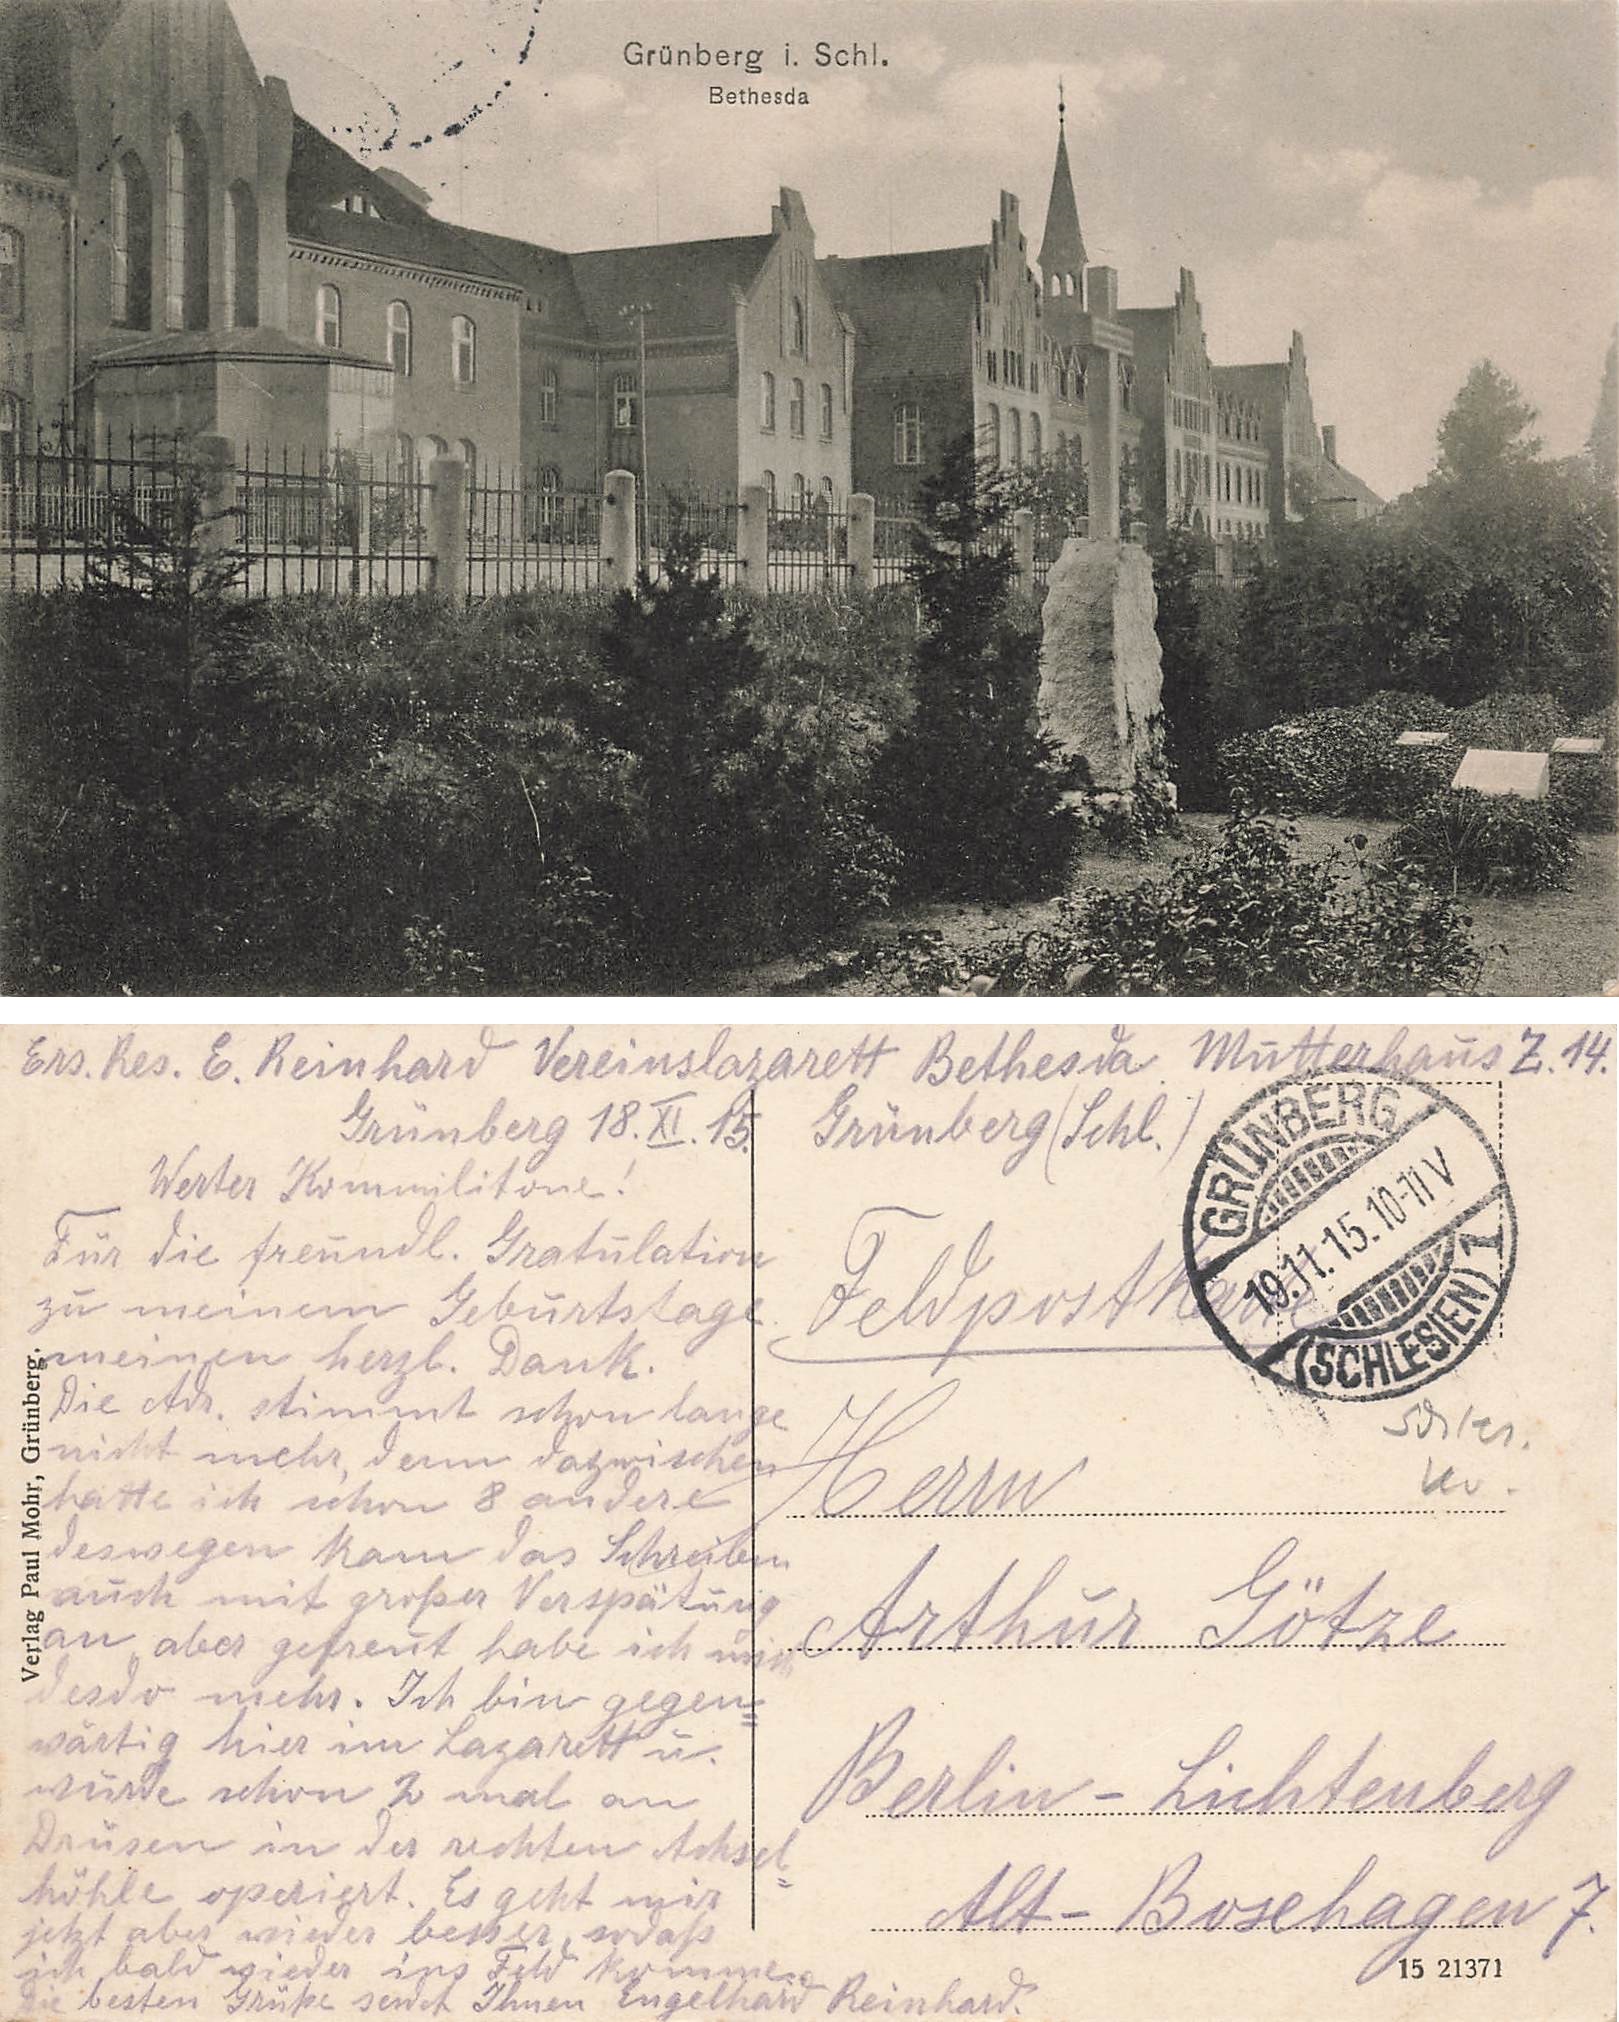 Grünberg i. Schl.
Bethesda
Ers. Res. E. Reinhard Vereinslazarett Bethesda Mutterhaus Z. 14.
Grünberg (Schl.)
Grünberg 18. XI. 15.
Werter Kommilitone!
Für die freundl. Gratulation
zu meinem Geburtstage
meinen herzl. Dank.
Die Adr. stimmt schon lange
nicht mehr, denn dazwischen
hatte ich schon 8 andere
deswegen kam das Schreiben
auch mit großer Verspätung
an, aber gefreut habe ich mich
desdo mehr. Ich bin gegen=
wärtig hier im Lazarett u.
wurde schon 2 mal an
Drüsen in der rechten Achsel=
höhle operiert. Es geht mir
jetzt aber wieder besser, sodaß
ich bald wieder ins Feld komme.
Die besten Grüße sendet Ihnen Engelhard Reinhard.
Verlag Paul Mohr, Grünberg.
GRÜNBERG
19.11.15.10-11 V
(SCHLESIEN) 1
Feldpostkarte
Herrn
Arthur Götze
Berlin - Lichtenberg
Alt - Boxhagen 7.
15 21371